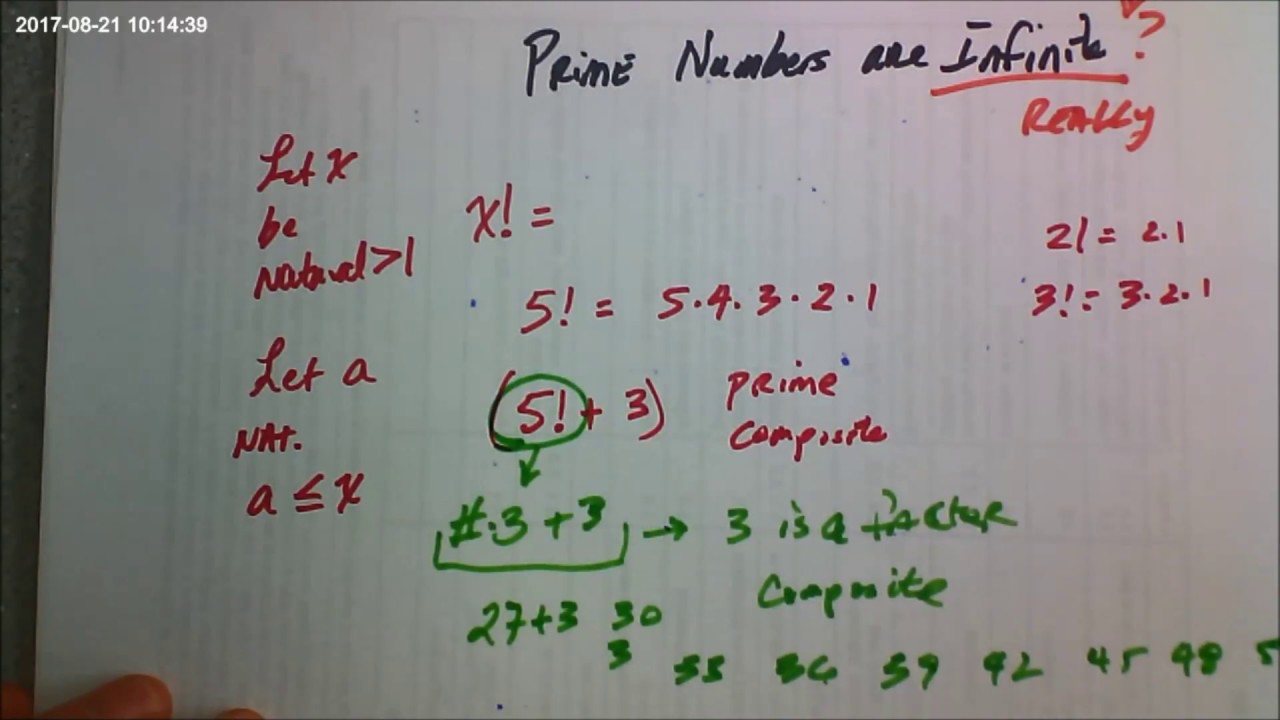 2017-08-21 10:14:39
Prime Numbers are Infinite ?
Really
Let x
be
Natural>1
x! =
2! = 2.1
5! = 5.4.3.2.1
3! = 3.2.1
Let a
NAt.
a ≤ x
(5! + 3)
prime
composite
#.3 + 3 → 3 is a factor
Composite
27+3 30
3 33 36 39 42 45 48